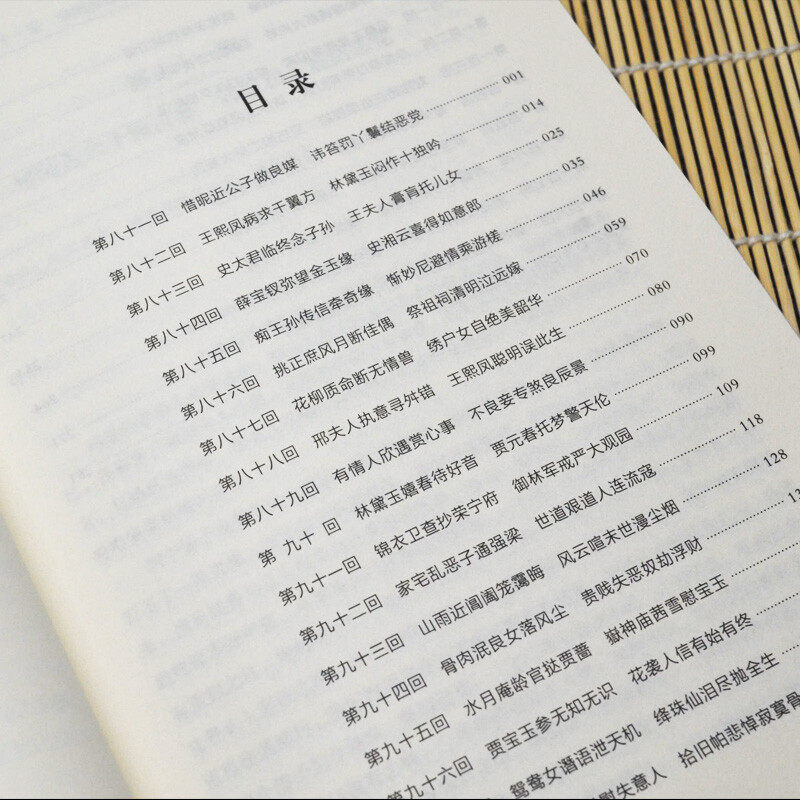 目录
第八十一回 惜昵近公子做良媒 讳笞罚丫鬟结恶党 001
第八十二回 王熙凤病求千翼方 林黛玉闷作十独吟 014
第八十三回 史太君临终念子孙 王夫人膏肓托儿女 025
第八十四回 薛宝钗弥望金玉缘 史湘云喜得如意郎 035
第八十五回 痴王孙传信牵奇缘 惭妙尼避情乘游槎 046
第八十六回 挑正庶风月断佳偶 祭祖祠清明泣远嫁 059
第八十七回 花柳质命断无情兽 绣户女自绝美韶华 070
第八十八回 邢夫人执意寻舛错 王熙凤聪明误此生 080
第八十九回 有情人欣遇赏心事 不良妾专煞良辰景 090
第九十回 林黛玉嬉春待好音 贾元春托梦警天伦 099
第九十一回 锦衣卫查抄荣宁府 御林军戒严大观园 109
第九十二回 家宅乱恶子通强梁 世道艰道人连流寇 118
第九十三回 山雨近阊阖笼霭晦 风云喧末世漫尘烟 128
第九十四回 骨肉泯良女落风尘 贵贱失恶奴劫浮财
第九十五回 水月庵龄官挞贾蔷 嶽神庙茜雪慰宝玉
第九十六回 贾宝玉参无知无识 花袭人信有始有终
鸳鸯女谶语泄天机 绛珠仙泪尽抛全生
慰失意人 拾旧帕悲悼寂寞骨